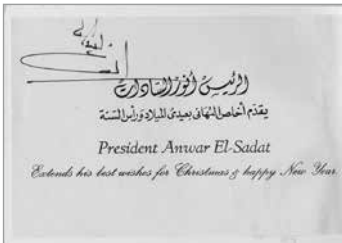 الرئيس أنور السادات
يقدم أخلص التهاني بعيدي الميلاد ورأس السنة
President Anwar El-Sadat
Extends his best wishes for Christmas & happy New Year.